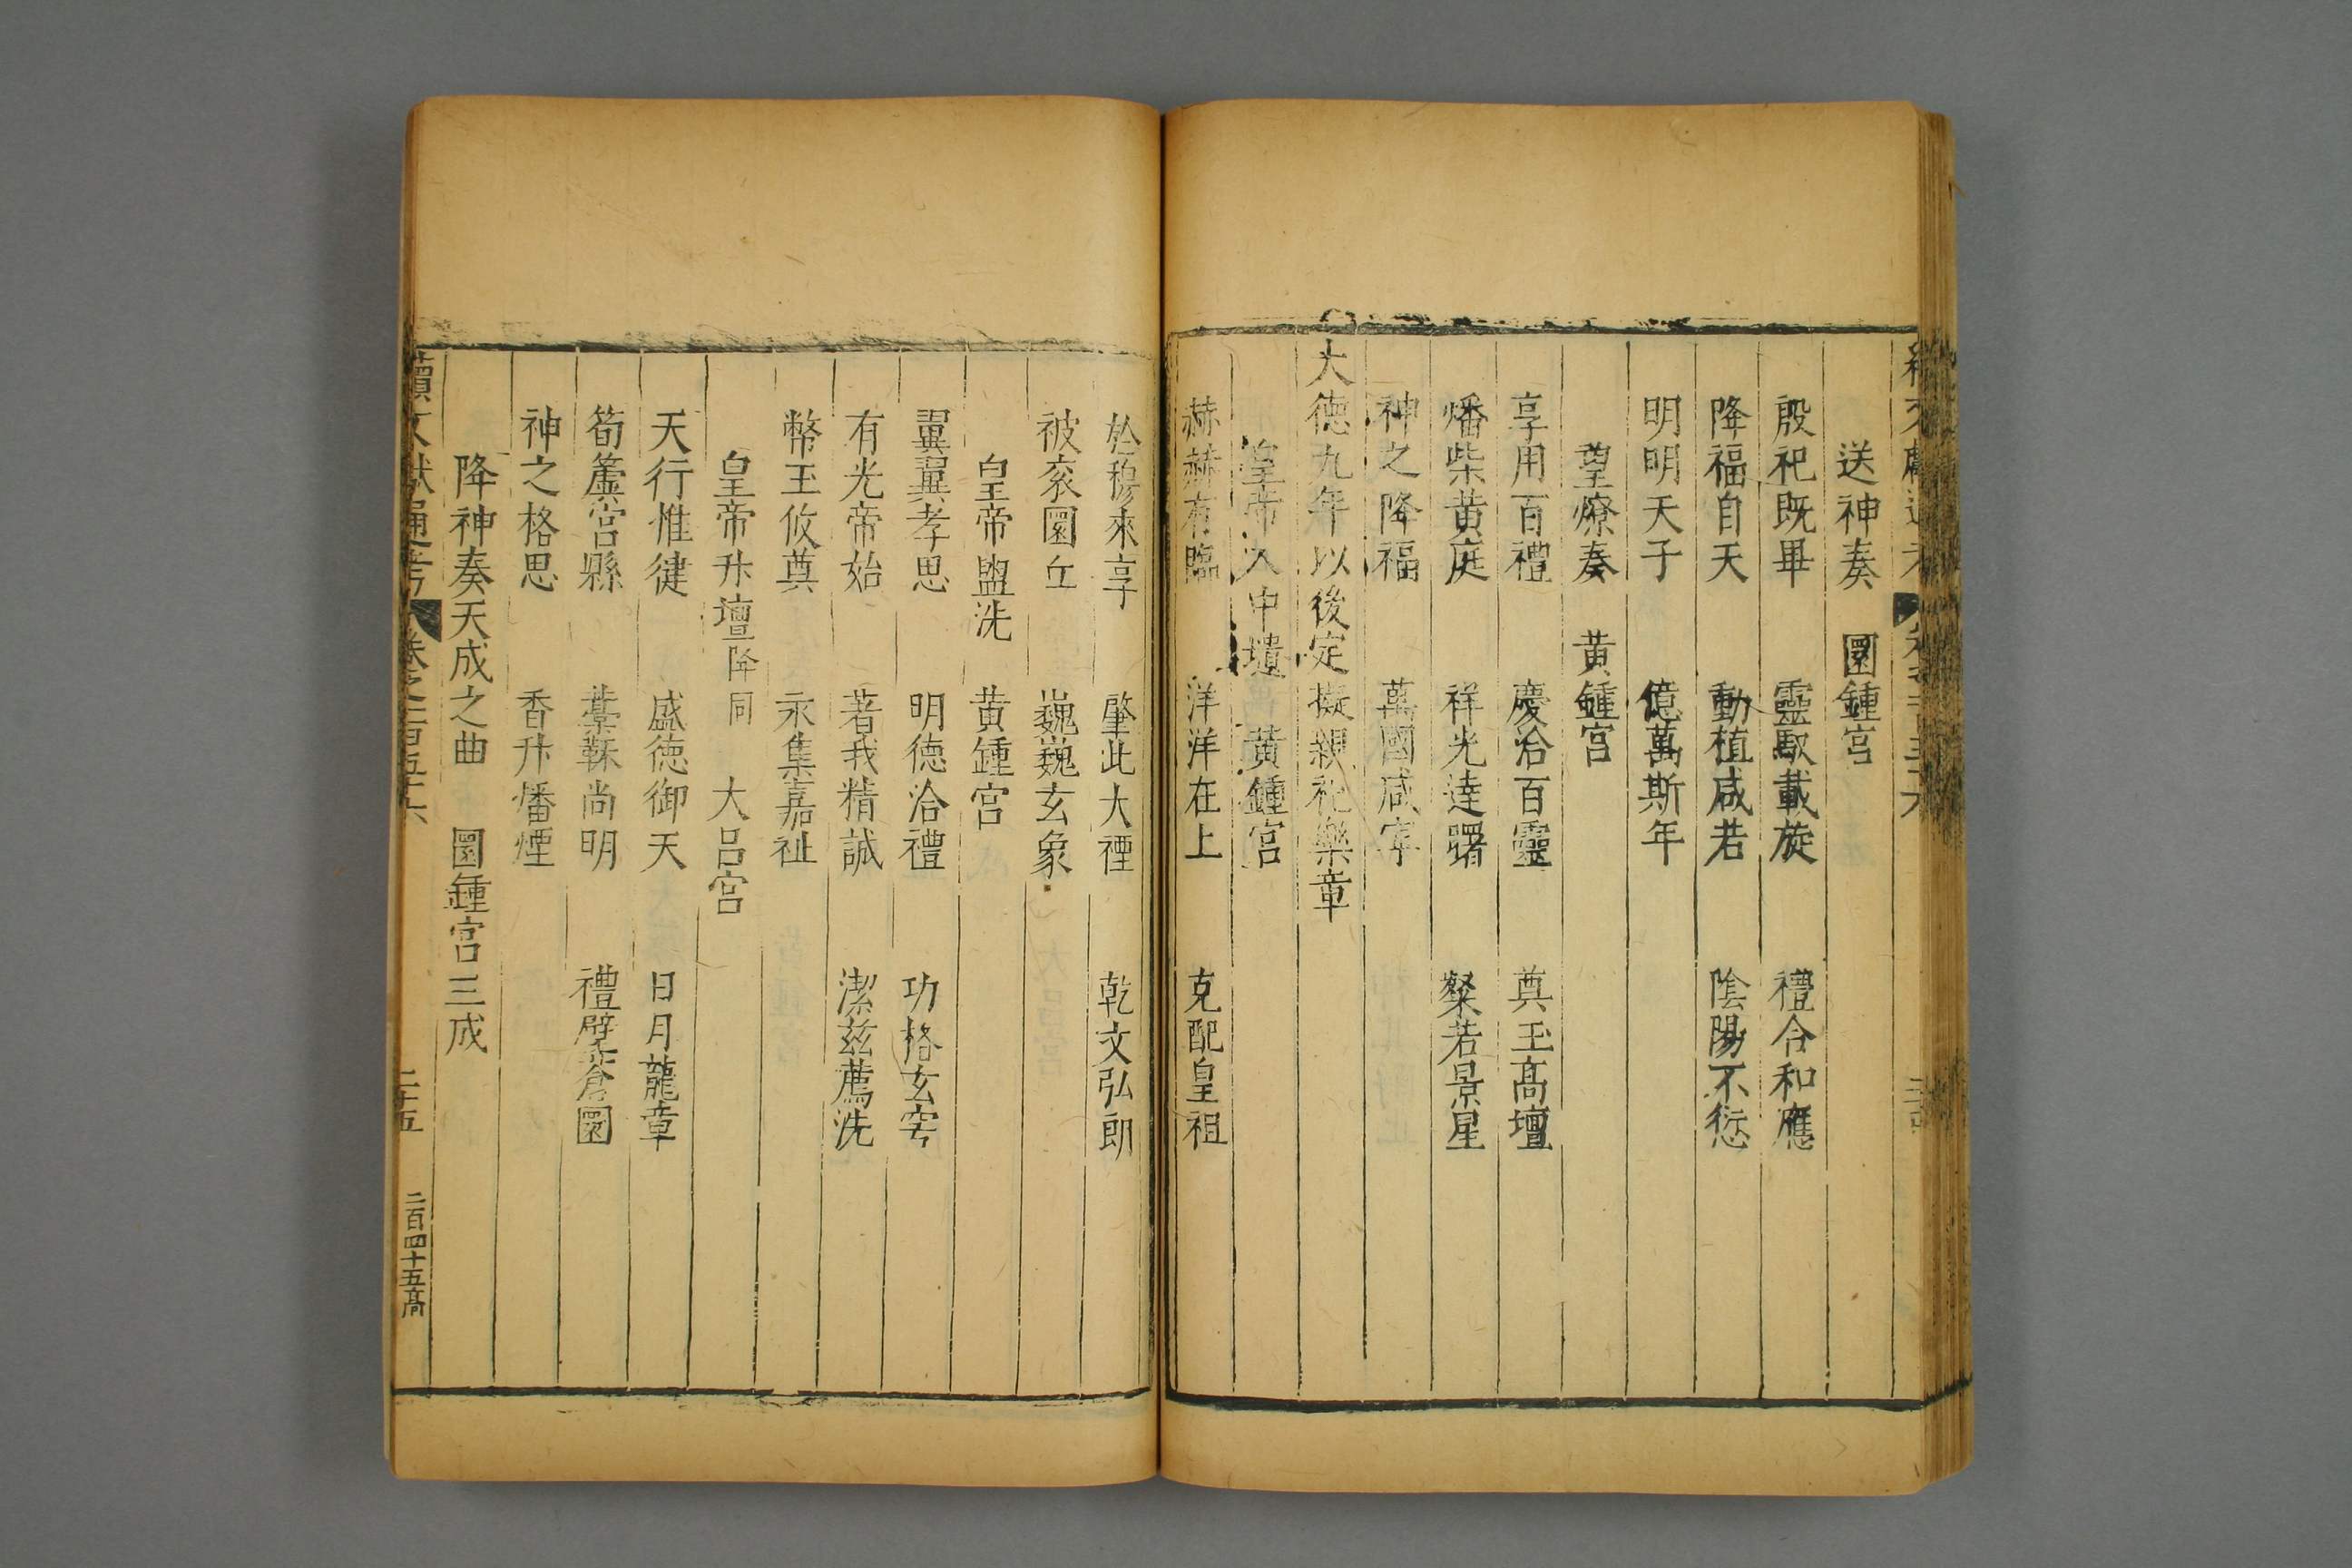 送神奏　圜鍾宮
殷祀既畢　靈馭載旋　禮合和應
降福自天　動植咸若　陰陽不愆
明明天子　億萬斯年
望燎奏　黃鍾宮
享用百禮　慶洽百靈　奠玉高壇
燔柴黃庭　祥光達曙　粲若景星
神之降福　萬國咸寧
大德九年以後定擬親祀樂章
皇帝入中壝　黃鍾宮
赫赫有臨　洋洋在上　克配皇祖
於穆來享　肇此大禋　乾文弘朗
被衮圜丘　巍巍玄象
皇帝盥洗　黃鍾宮
翼翼孝思　明德洽禮　功格玄穹
有光帝始　著我精誠　潔茲薦洗
幣玉攸奠　永集嘉祉
皇帝升壇降同　大呂宮
天行惟健　盛德御天　日月龍章
筍簴宮縣　藁鞂尚明　禮璧蒼圜
神之格思　香升燔煙
降神奏天成之曲　圜鍾宮三成
續文獻通考　卷之一百五十六　二十五　二百四十五高